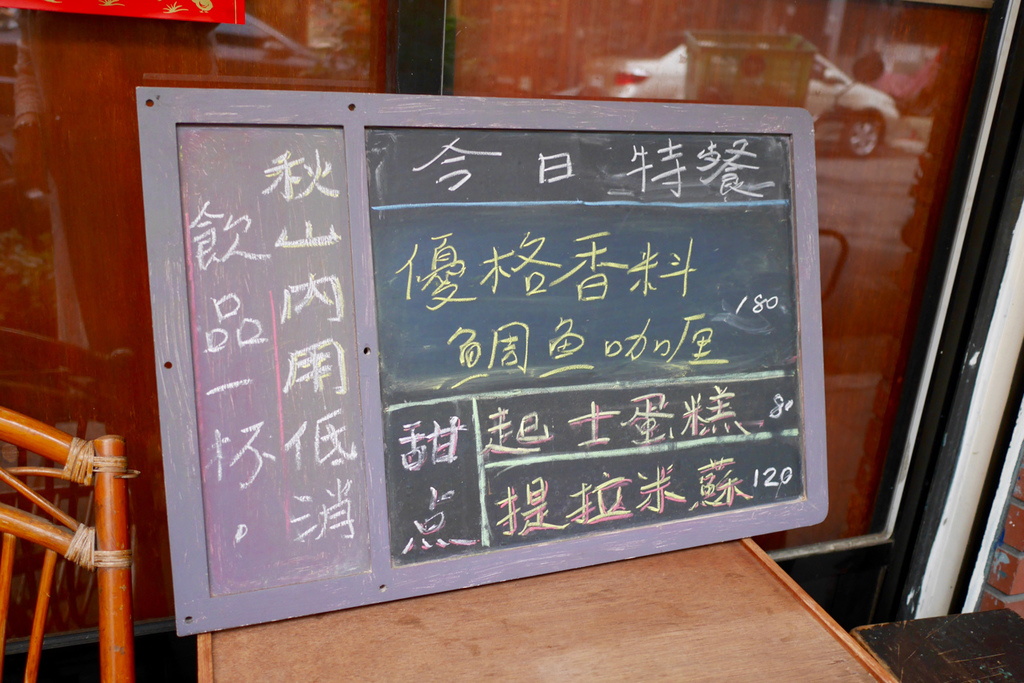 今日特餐
優格香料
鯛魚咖喱 180
甜点
起士蛋糕 80
提拉米蘇 120
秋山內用低消
飲品一杯。